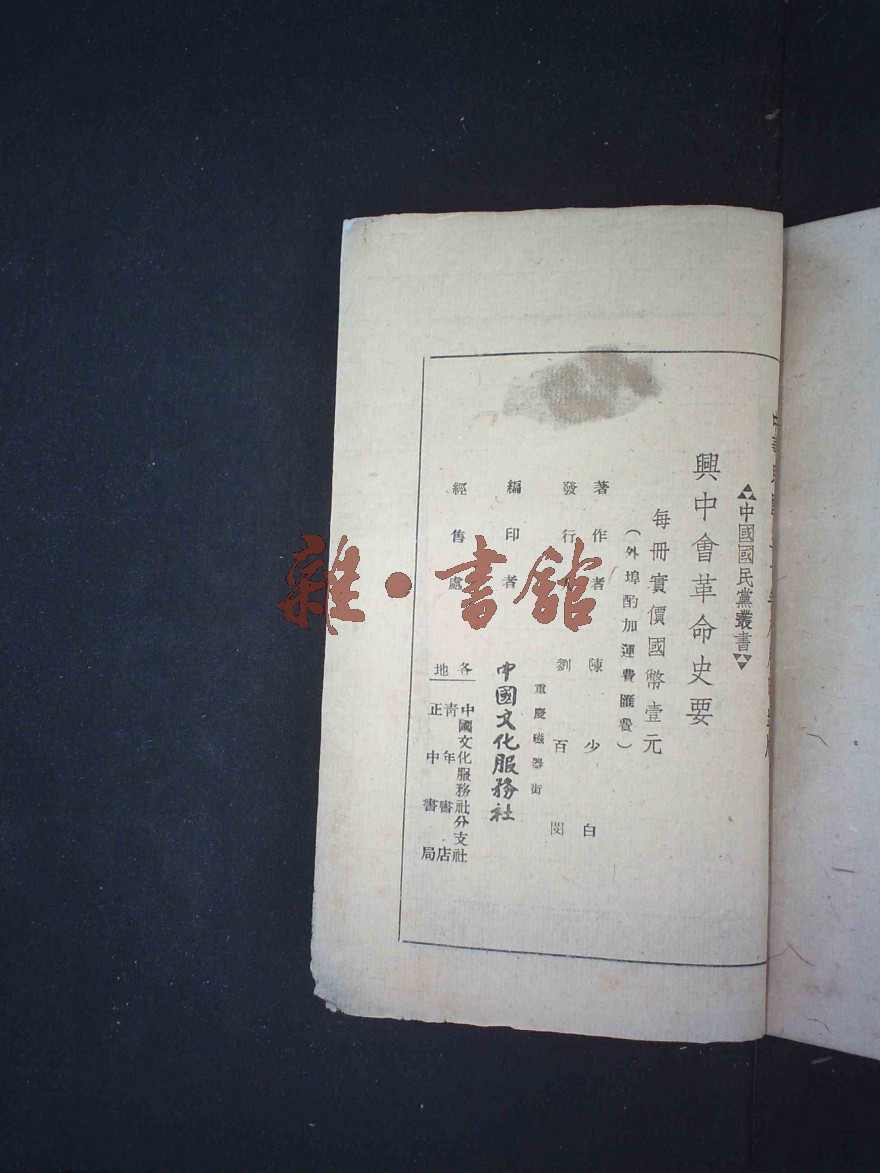 中國國民黨叢書
興中會革命史要
每冊實價國幣壹元
（外埠酌加運費匯費）
著作者 陳少白
發行人 劉百閔
重慶磁器街
編印者 中國文化服務社
經售處 各地
中國文化服務社分支社
青年書店
正中書局
雜·書館